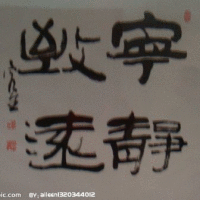 寧靜
致遠
pic.com
BY: aileen1320344012